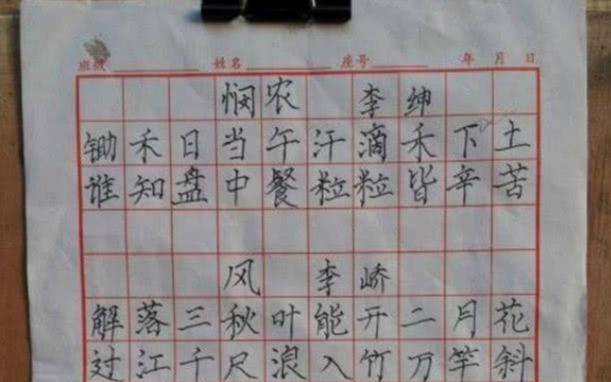 班级 姓名 座号 年 月 日
悯农 李绅
锄禾日当午汗滴禾下土
谁知盘中餐粒粒皆辛苦
风 李峤
解落三秋叶能开二月花
过江千尺浪入竹万竿斜